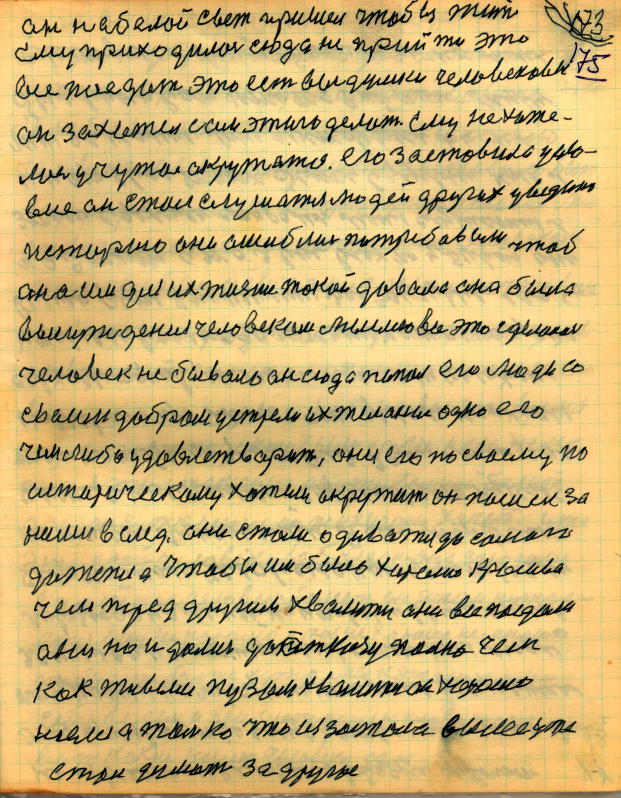 173
175
он на белой свет пришел чтобы жить
Ему приходилос сюда не прийти это
все поедат это ест выдумки человековы
он захотел сам этого делат. Ему не хоте-
лос учутое окружат. его заставила усло-
вие он стал слушатя людей других
историю они ошиблис потребовали чтоб
она им для их жизни токой довала она была
человеком это сделано
человек не бывало он сюда попал его люди со
своим добром устрели их желание одно его
чем либо удовлетварит, они его по своему по
историческому хотели окружит он пошел за
ними в след. они стали одеват и до самого
а чтобы им было хорошо красива
чем перед другим хвалити они все поедали
они но и долис полно чем
как живели пузом хвалити он хорошо
наелся только что из за стола вылез уже
стал думат за другое